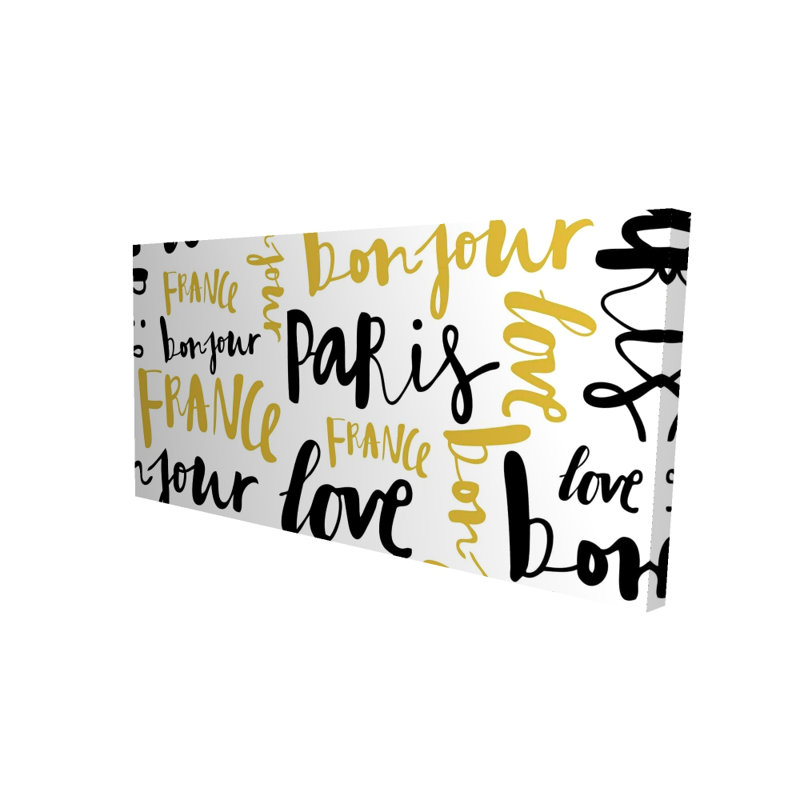 bonjour
FRANCE
jour
bonjour
PARIS
love
FRANCE
FRANCE
bon
love
njour
love
bon